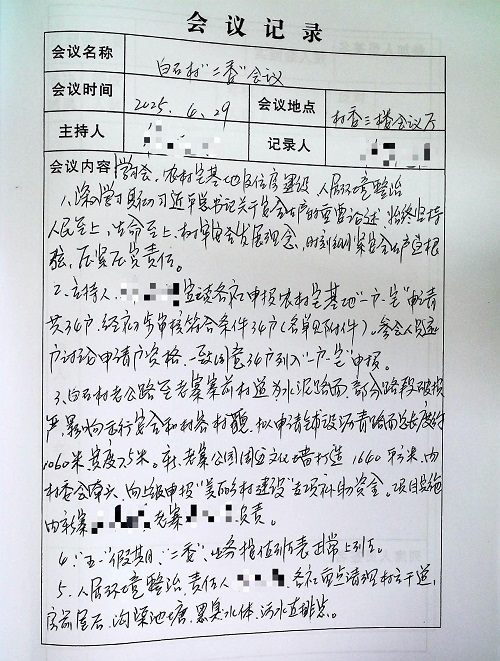 会议记录
会议名称 白石村"二委"会议
会议时间 2025.4.29 会议地点 村委三楼会议厅
主持人 记录人
会议内容 学习会、农村宅基地及住房建设、人居环境整治
1、深入学习贯彻习近平总书记关于安全生产的重要论述,始终坚持
人民至上,生命至上,树牢安全发展理念,时刻绷紧安全生产这根
弦,压紧压实责任。
2、主持人 宣读各社申报农村宅基地"一户一宅"申请
共34户,经初步审核符合条件34户(名单见附件)。参会人员逐
户讨论申请户资格,一致同意34户列入"一户一宅"申报。
3、白石村老公路至老寨寨前村道为水泥路面,部分路段破损
严重影响通行安全和村容村貌,拟申请铺设沥青路面总长度约
1060米,宽度7.5米。新、老寨公园围区文化墙打造1640平方米,由
村委会牵头,向上级申报"美丽乡村建设"专项补助资金。项目实施
由新寨 老寨 负责。
4、"五一"假期日,"二委"、业务值班表正常上班。
5、人居环境整治,责任人 各社重点清理村主干道,
房前屋后、沟渠池塘、黑臭水体、污水直排点。